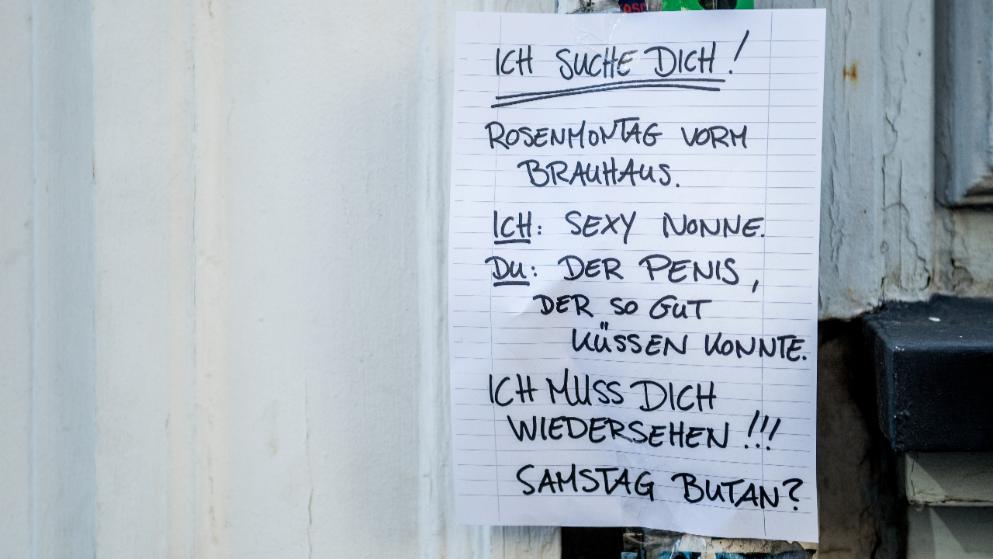 ICH SUCHE DICH!
ROSENMONTAG VORM
BRAUHAUS.
ICH: SEXY NONNE.
DU: DER PENIS,
DER SO GUT
KÜSSEN KONNTE.
ICH MUSS DICH
WIEDERSEHEN!!!
SAMSTAG BUTAN?